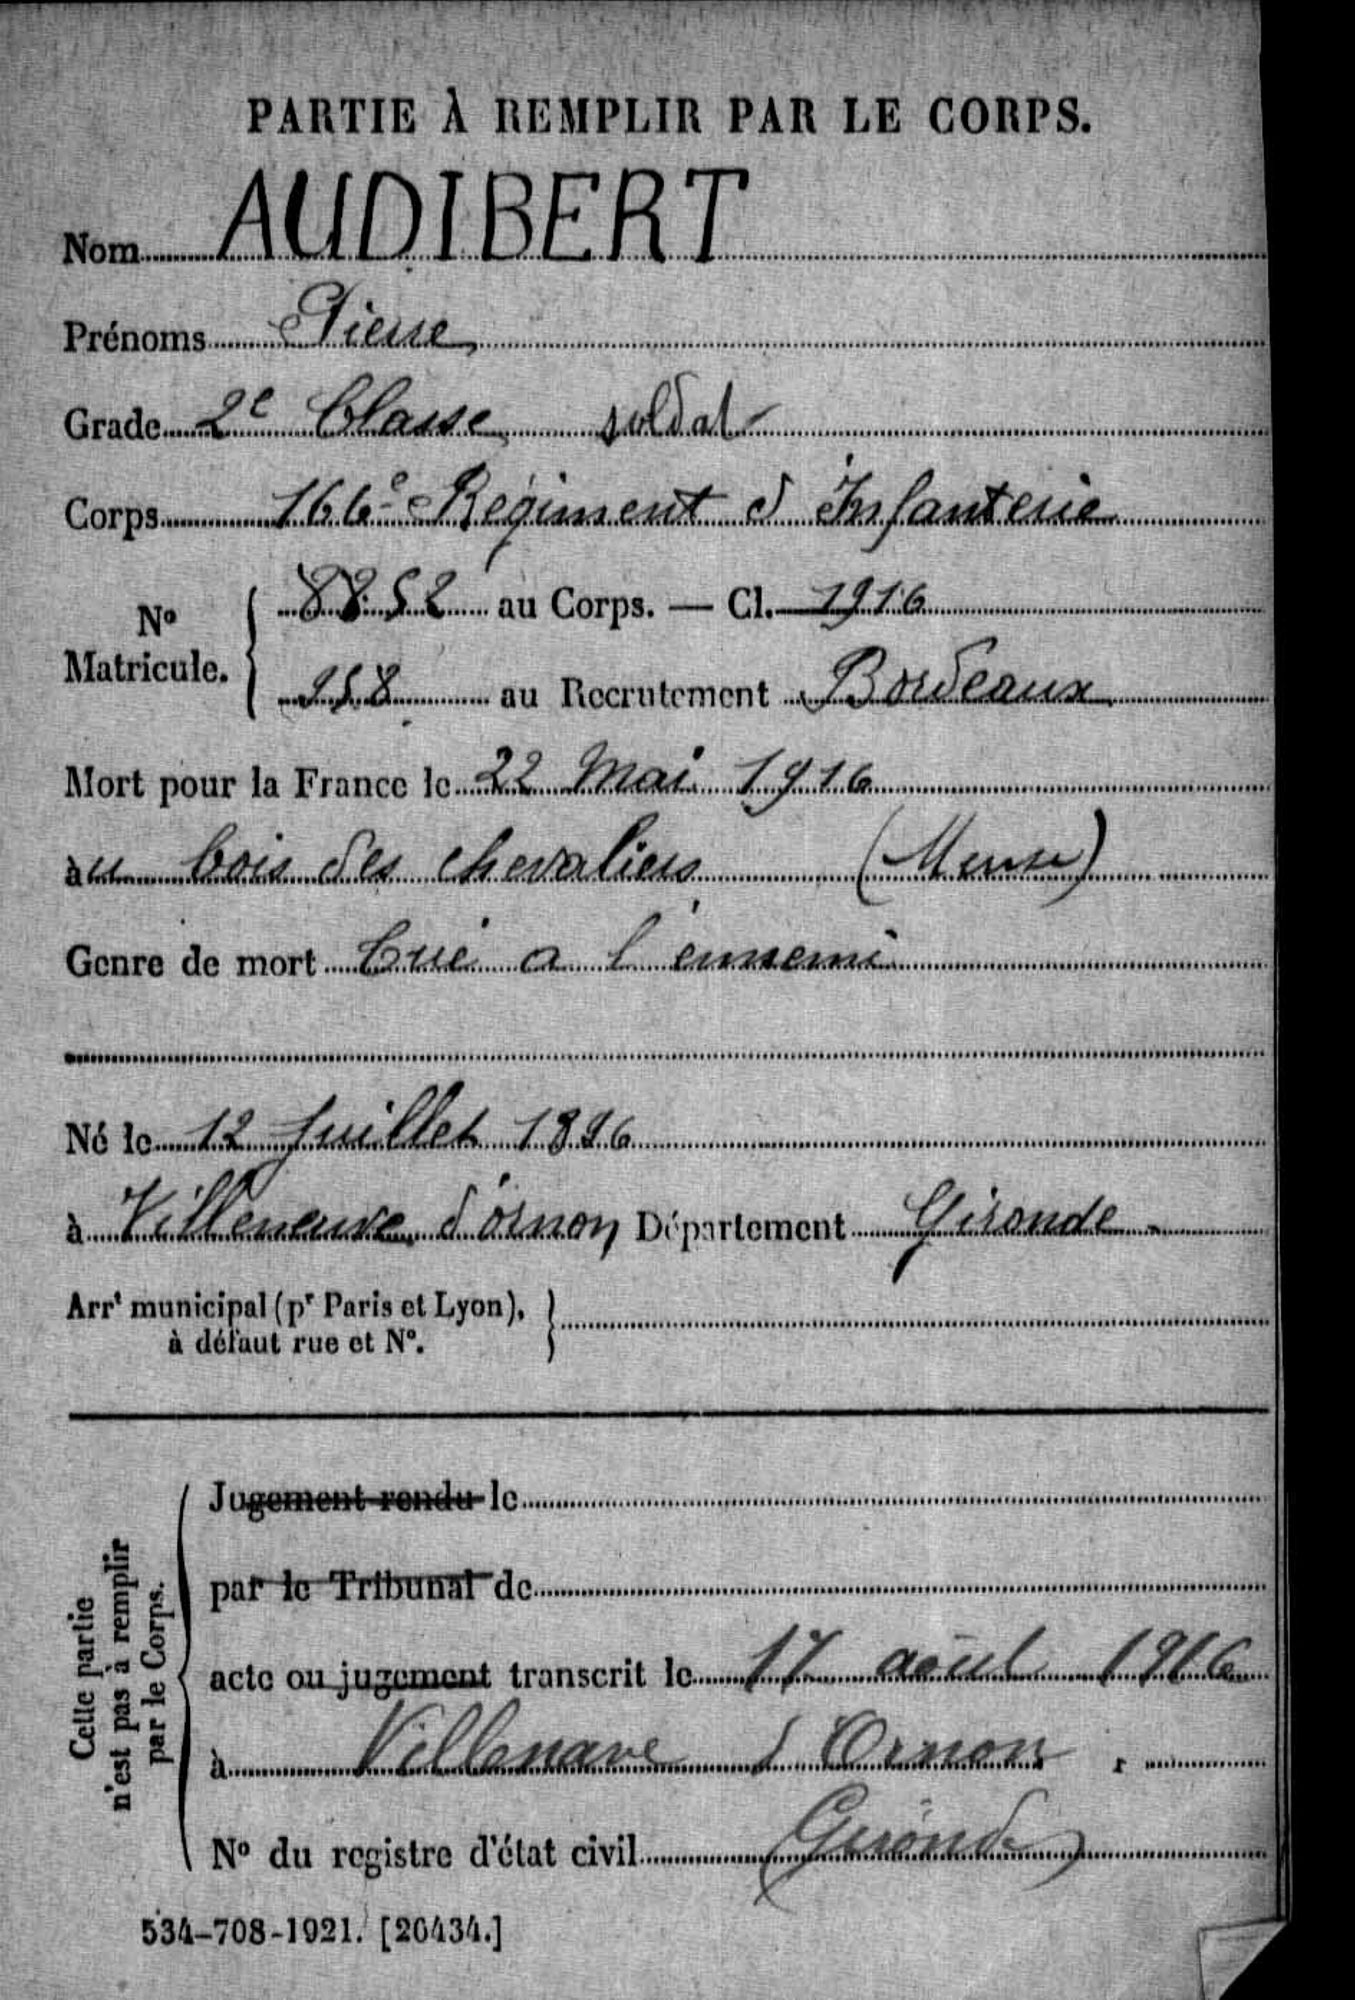 PARTIE À REMPLIR PAR LE CORPS.
Nom AUDIBERT
Prénoms Pierre
Grade 2e Classe soldat
Corps 166e Régiment d'Infanterie
No Matricule. 8852 au Corps. — Cl. 1916
958 au Recrutement Bordeaux
Mort pour la France le 22 Mai 1916
au bois des chevaliers (Meuse)
Genre de mort Tué a l'ennemi
Né le 12 Juillet 1896
à Villeneuve d'ornon Département Gironde
Arrt municipal (pr Paris et Lyon),
à défaut rue et No.
Cette partie
n'est pas à remplir
par le Corps.
Jugement rendu le
par le Tribunal de
acte ou jugement transcrit le 17 août 1916
à Villenave d'Ornon
No du registre d'état civil (Gironde)
534-708-1921. [20434.]